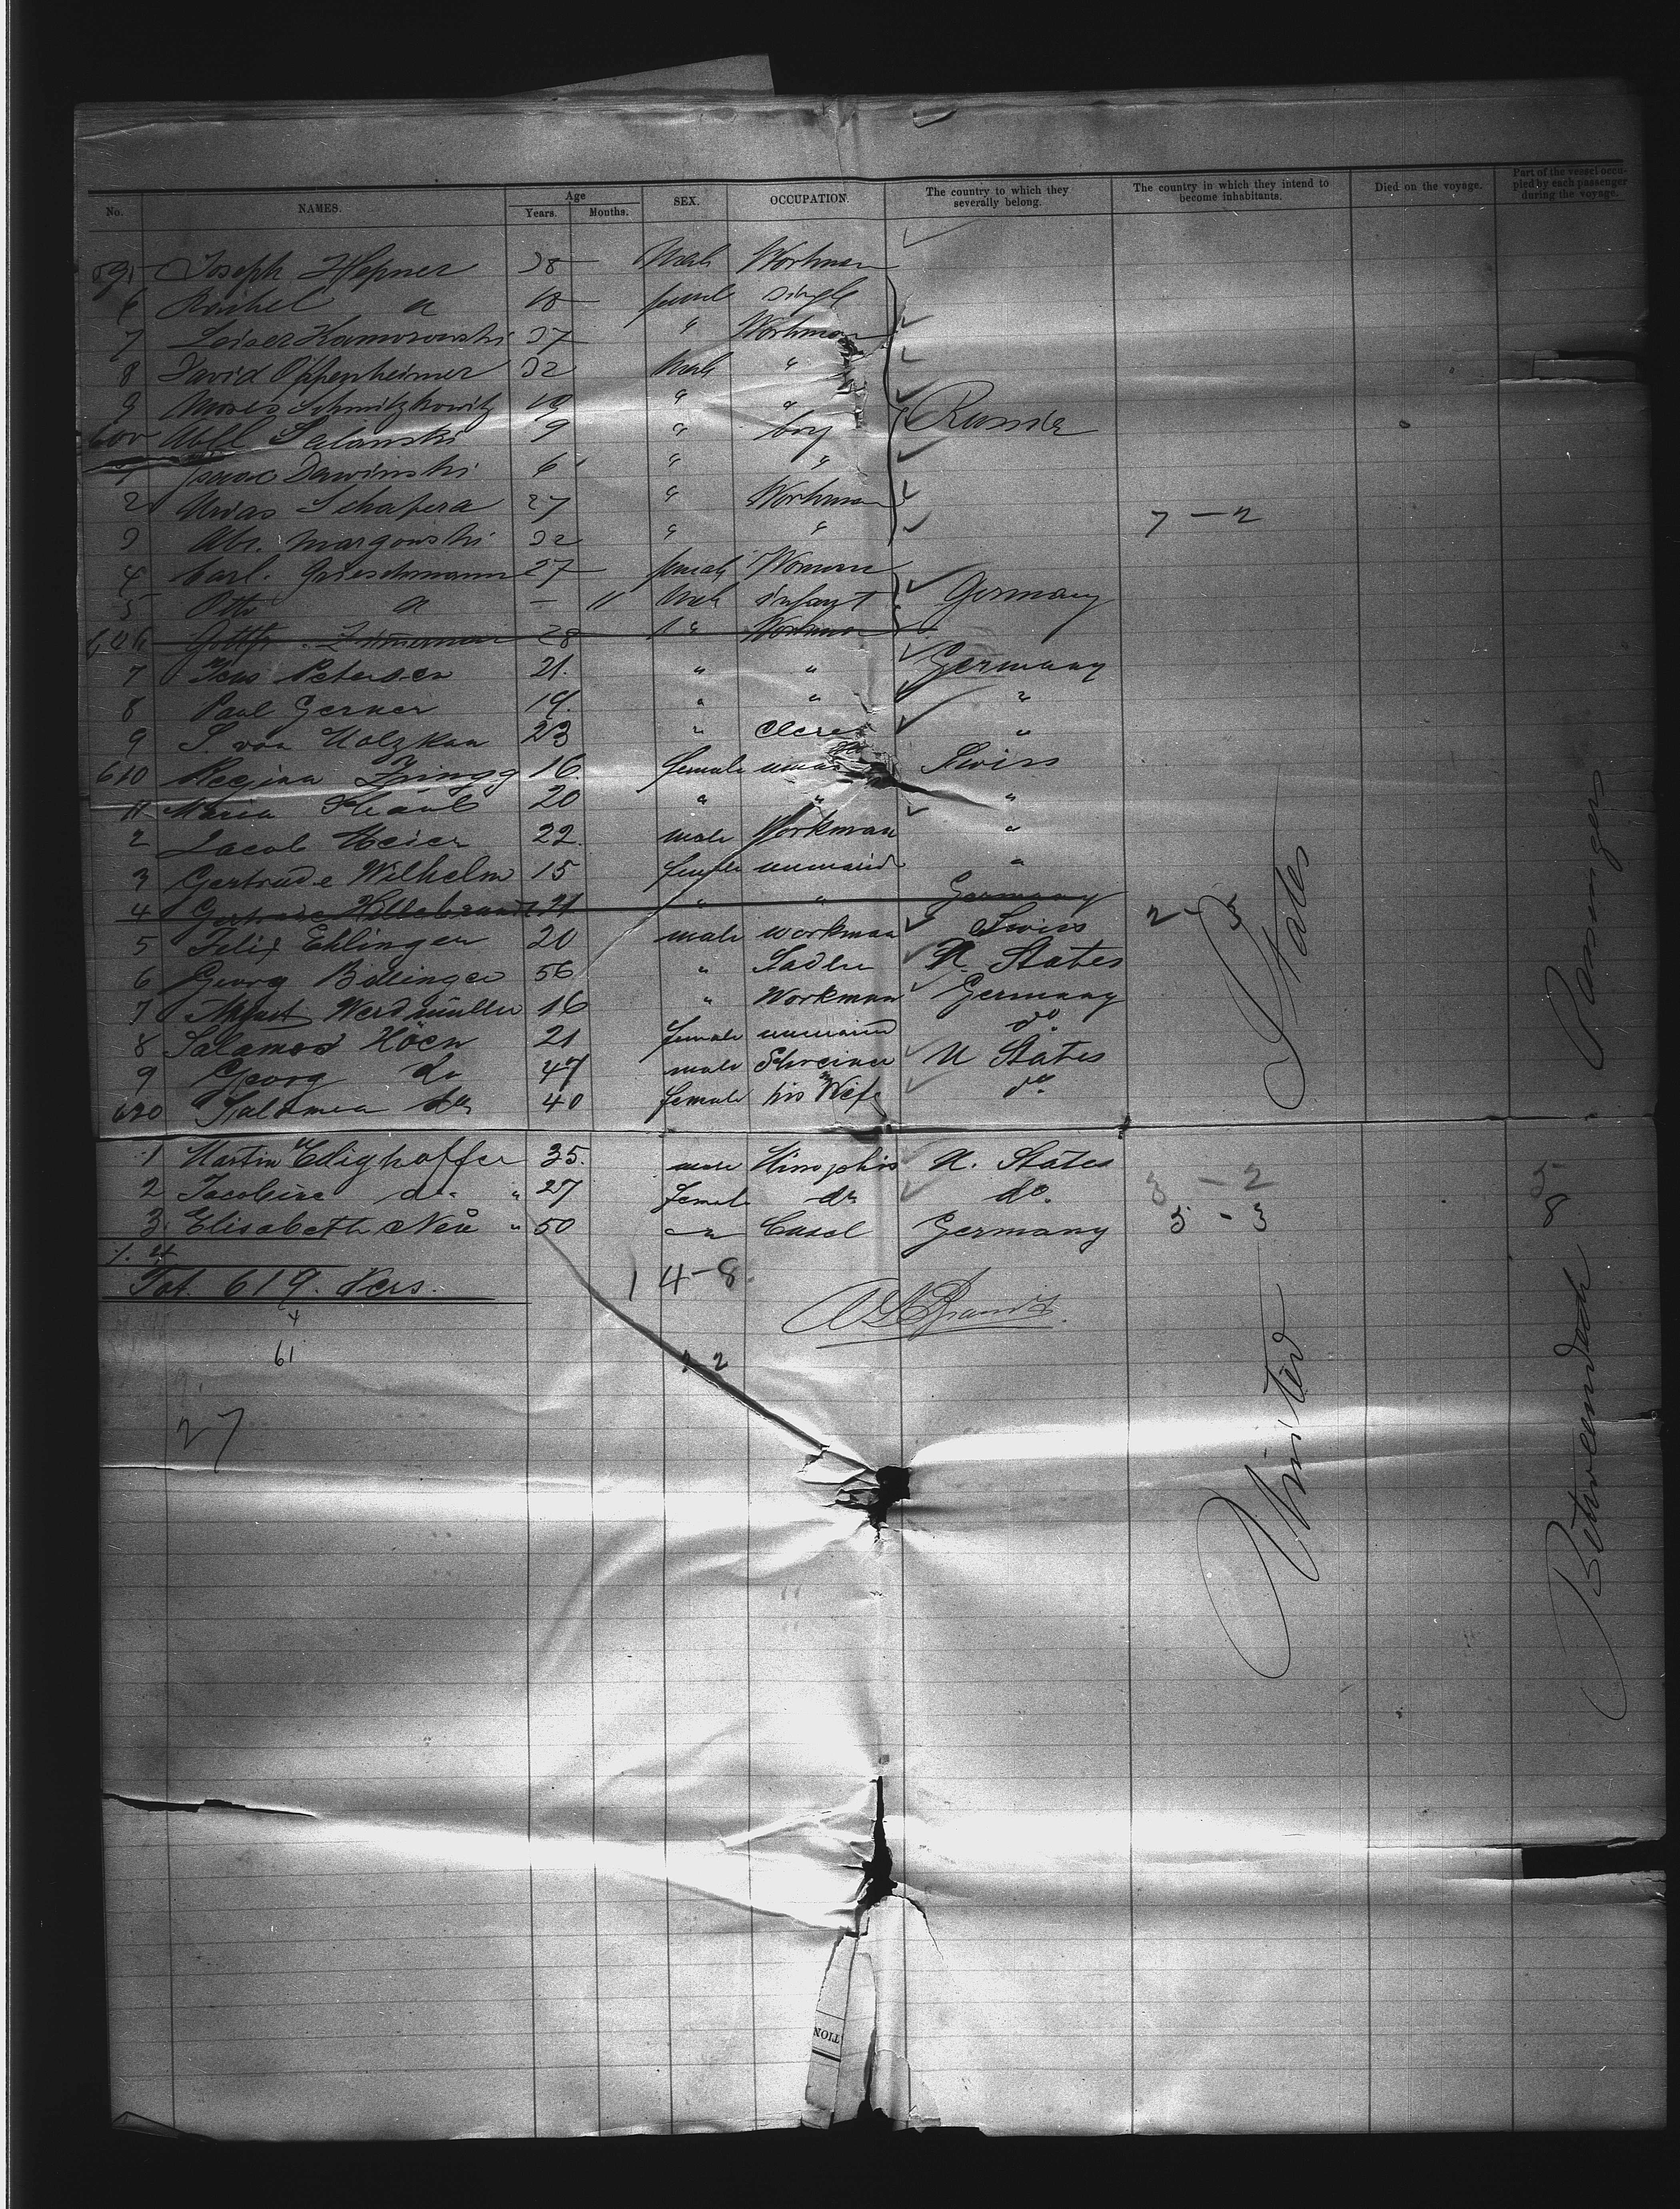 No. NAMES. Age Years. Months. SEX. OCCUPATION. The country to which they severally belong. The country in which they intend to become inhabitants. Died on the voyage. Part of the vessel occupied by each passenger during the voyage.
595 Joseph Hepner 38 Male Workman
6 Rachel " 18 female single
7 Leiser 37 " Workman
8 David Oppenheimer 32 Male "
9 Moses Schmitzkowitz 19 " "
600 9 " boy Russia
1 Isaac Dawinski 6 " "
2 Schapera 27 " Workman
3 Abr. Margowski 32 " "
7 - 2
4 Carl. Grieschmann 27 female Woman
5 Otto " - 11 Male infant Germany
606 Gottfr. Zimerman 28 " Workman
7 Jens Petersen 21. " " Germany
8 Paul Gerner 19. " " "
9 S. von Holzkan 23 " Clerc "
610 Regina Zwingg 16. female Swiss
11 Maria 20 " " "
2 Jacob Meier 22. male Workman "
3 Gertrude Wilhelm 15 female unmaried "
4 Gertrude Hillebrandt 21 " " Germany
2 - 3
5 Felix Ehlinger 20 male workman Swiss
6 Georg Bollinger 56 " Sadler U. States
7 August Werdmüller 16 " Workman Germany
8 Salamea Höen 21 female unmaried do.
9 Georg do 47 male Schreiner U States
620 Salamea do 40 female his Wife do.
1 Martin Edighoffer 35. male U. States
2 Jacobine do. " 27 female do do.
3 - 2
3. Elisabeth Neu " 50 " Casel Germany
5 - 3
5
8
Tot. 619. Pers.
14-8.
4
61
1 2
27
United States
Betweendeck Passengers
TION